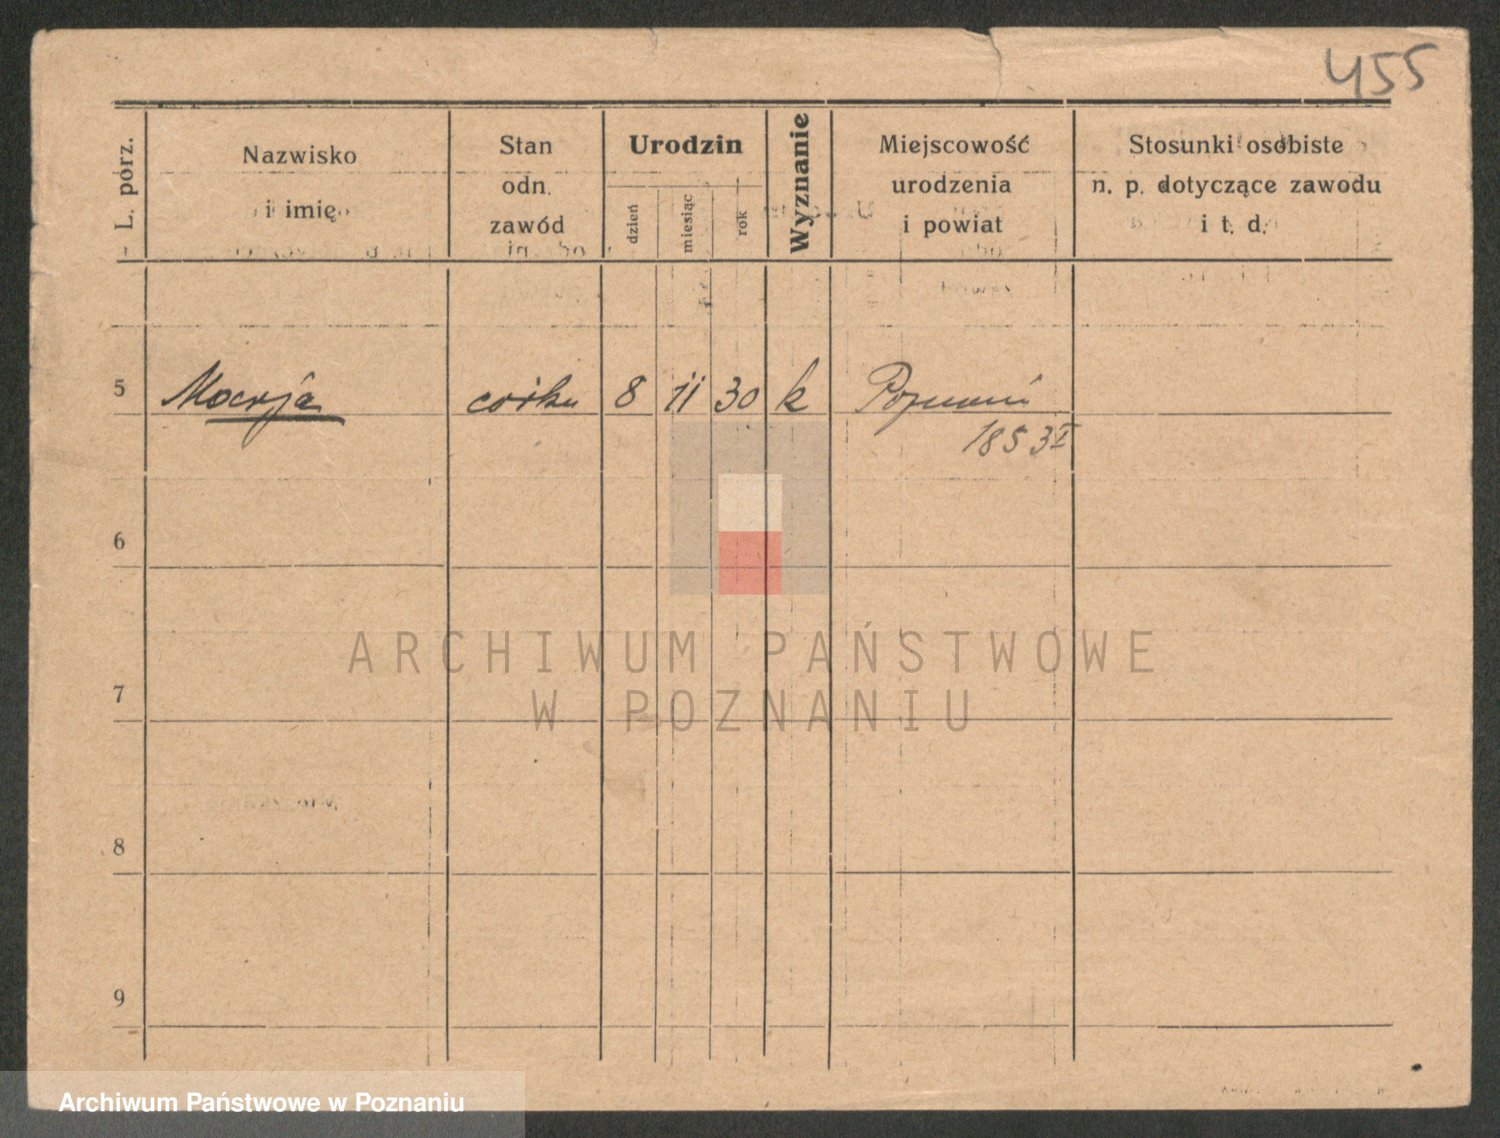 455
L. porz.
Nazwisko
i imię
Stan
odn.
zawód
Urodzin
dzień
miesiąc
rok
Wyznanie
Miejscowość
urodzenia
i powiat
Stosunki osobiste
n. p. dotyczące zawodu
i t. d.
5 Marja córka 8 11 30 k Poznań
1853
6
ARCHIWUM PAŃSTWOWE
W POZNANIU
7
8
9
Archiwum Państwowe w Poznaniu